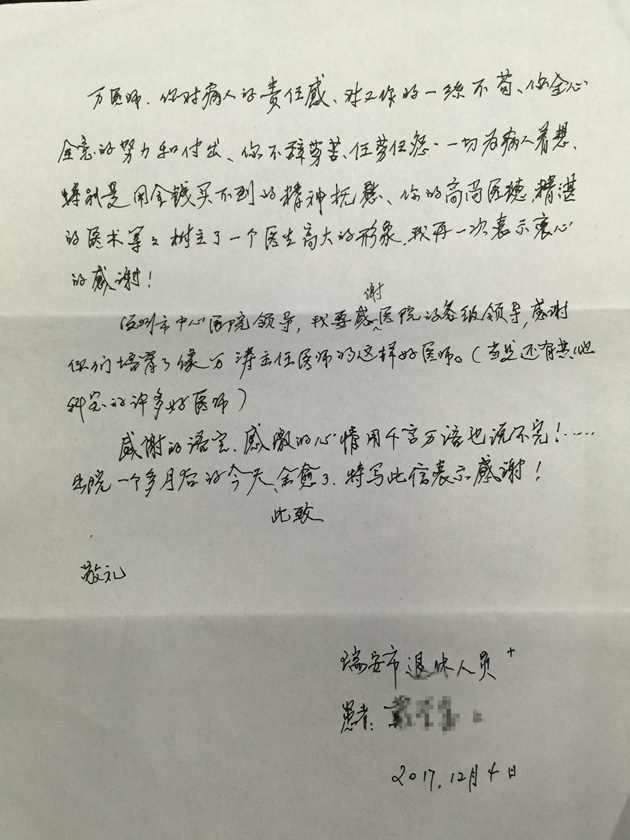 万医师、你对病人的责任感、对工作的一丝不苟、你全心
全意的努力和付出、你不辞劳苦、任劳任怨·一切为病人着想、
特别是用金钱买不到的精神抚慰、你的高尚医德精湛
的医术等等树立了一个医生高大的形象,我再一次表示衷心
的感谢!
温州市中心医院领导,我要感谢医院的各级领导,感谢
你们培养了像万涛主任医师的这样好医师。(当然还有其他
科室的许多好医师)
感谢的语言、感激的心情用千言万语也说不完!……
出院一个多月后的今天、全愈了、特写此信表示感谢!
此致
敬礼
瑞安市退休人员
患者:
2017.12月4日